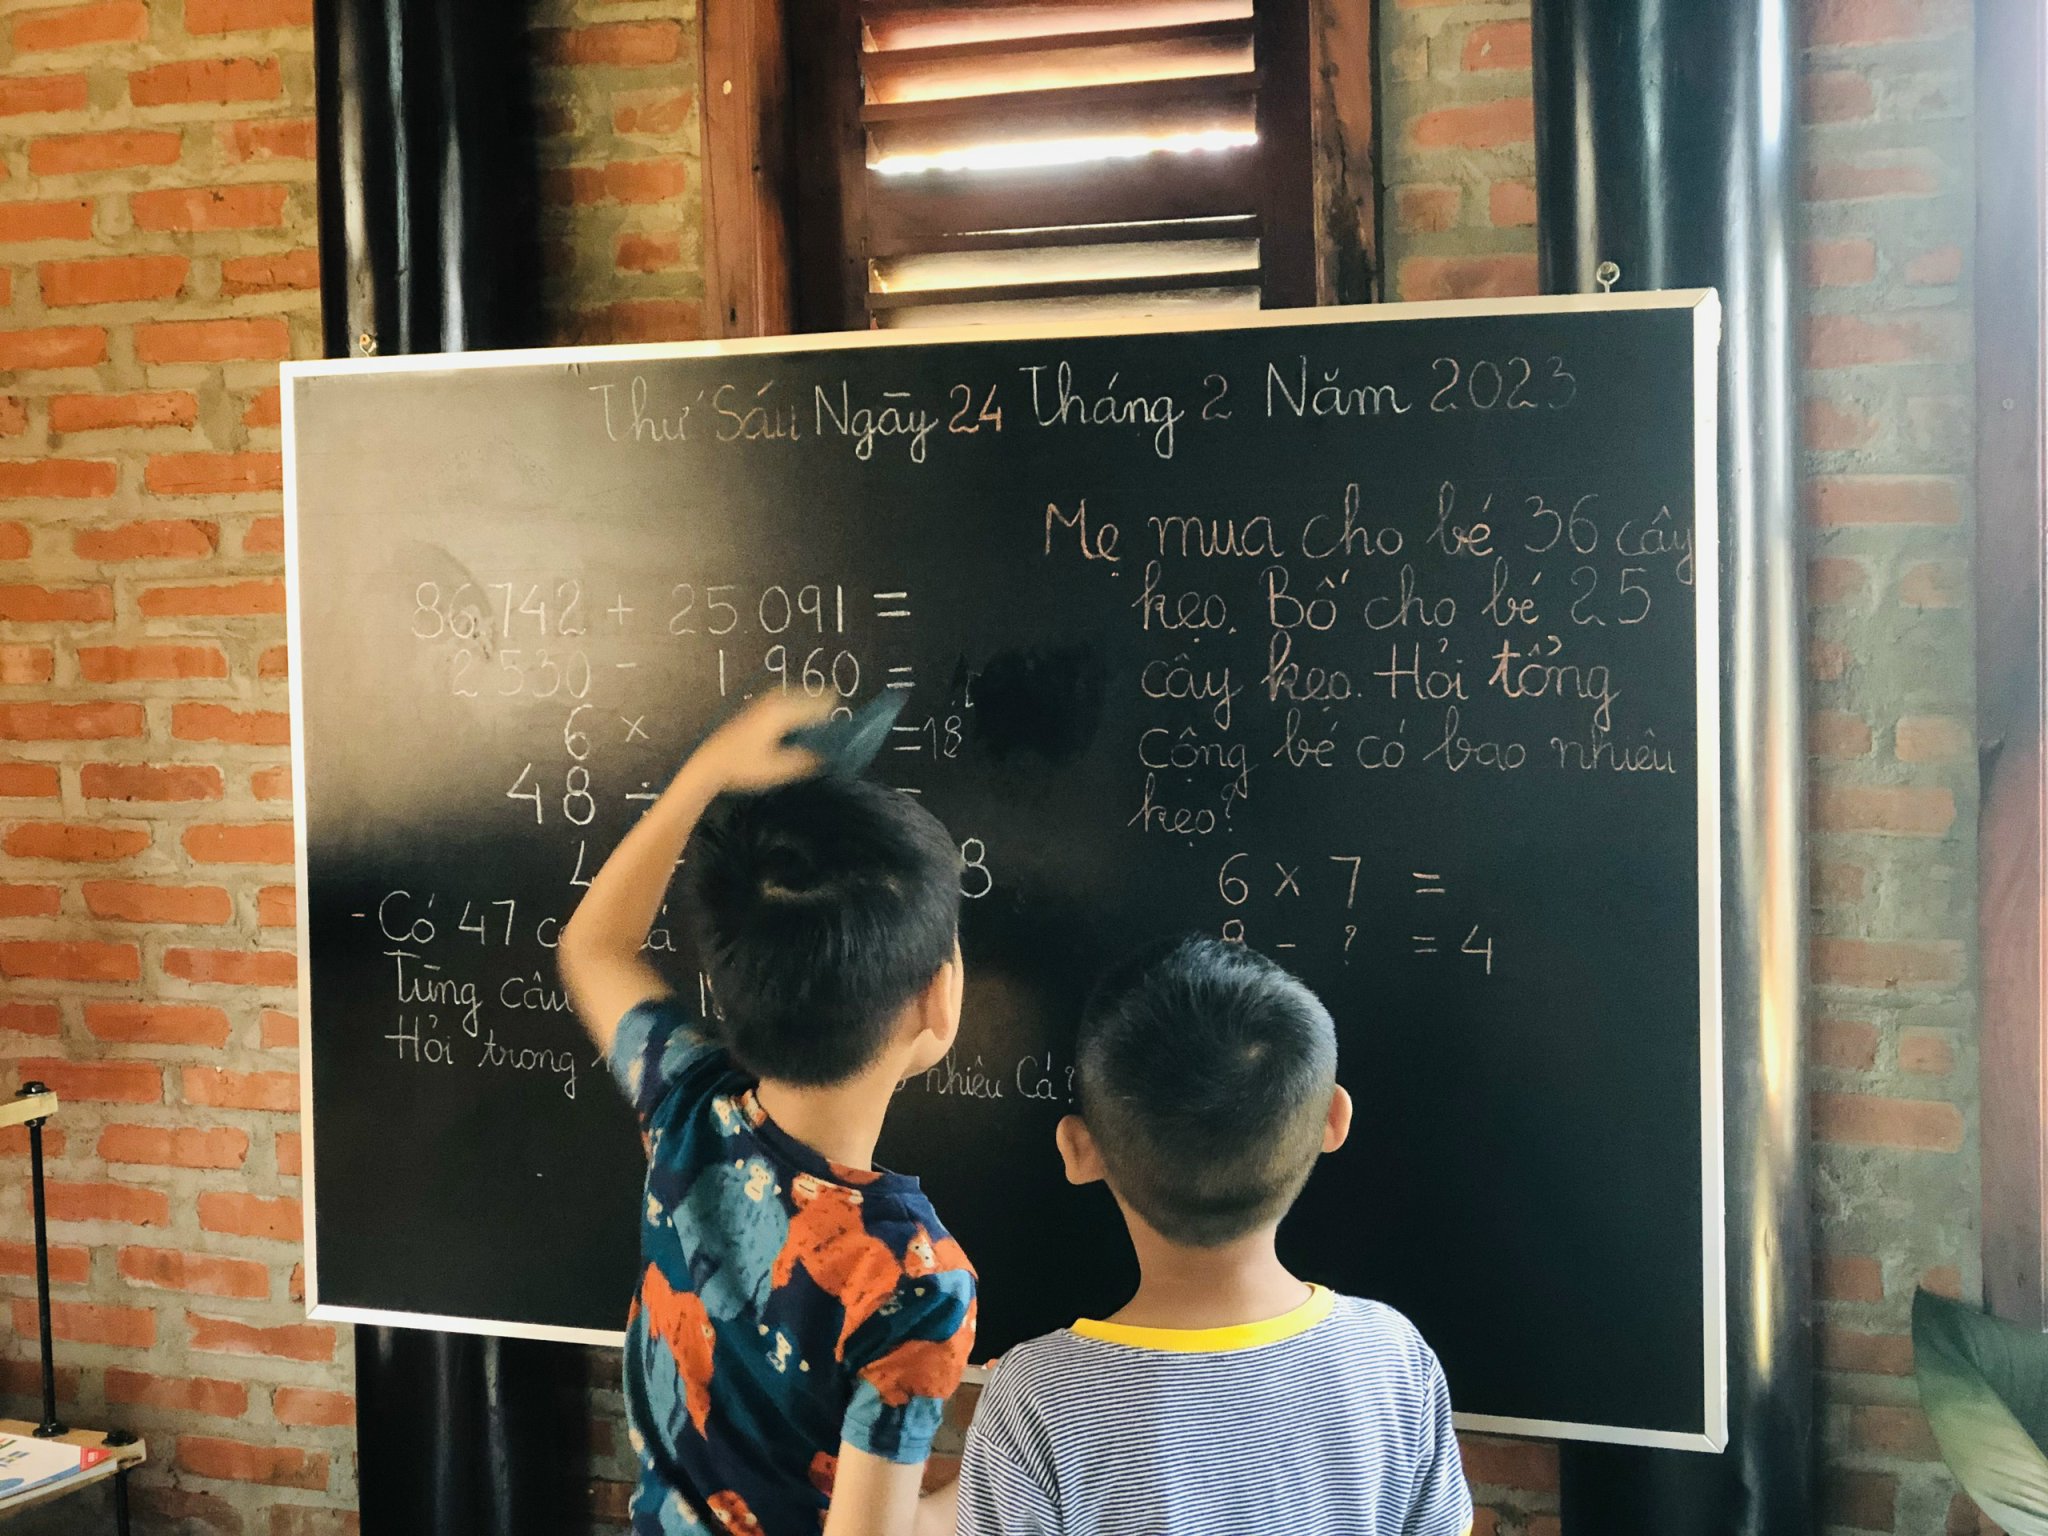 Thứ Sáu Ngày 24 Tháng 2 Năm 2023
86.742 + 25.091 =
2530 - 1.960 =
6 × = 18
48 ÷ =
4 8
- Có 47 cá
Từng câu
Hỏi trong nhiêu Cá?
Mẹ mua cho bé 36 cây
kẹo. Bố cho bé 25
cây kẹo. Hỏi tổng
cộng bé có bao nhiêu
kẹo?
6 × 7 =
8 - ? = 4